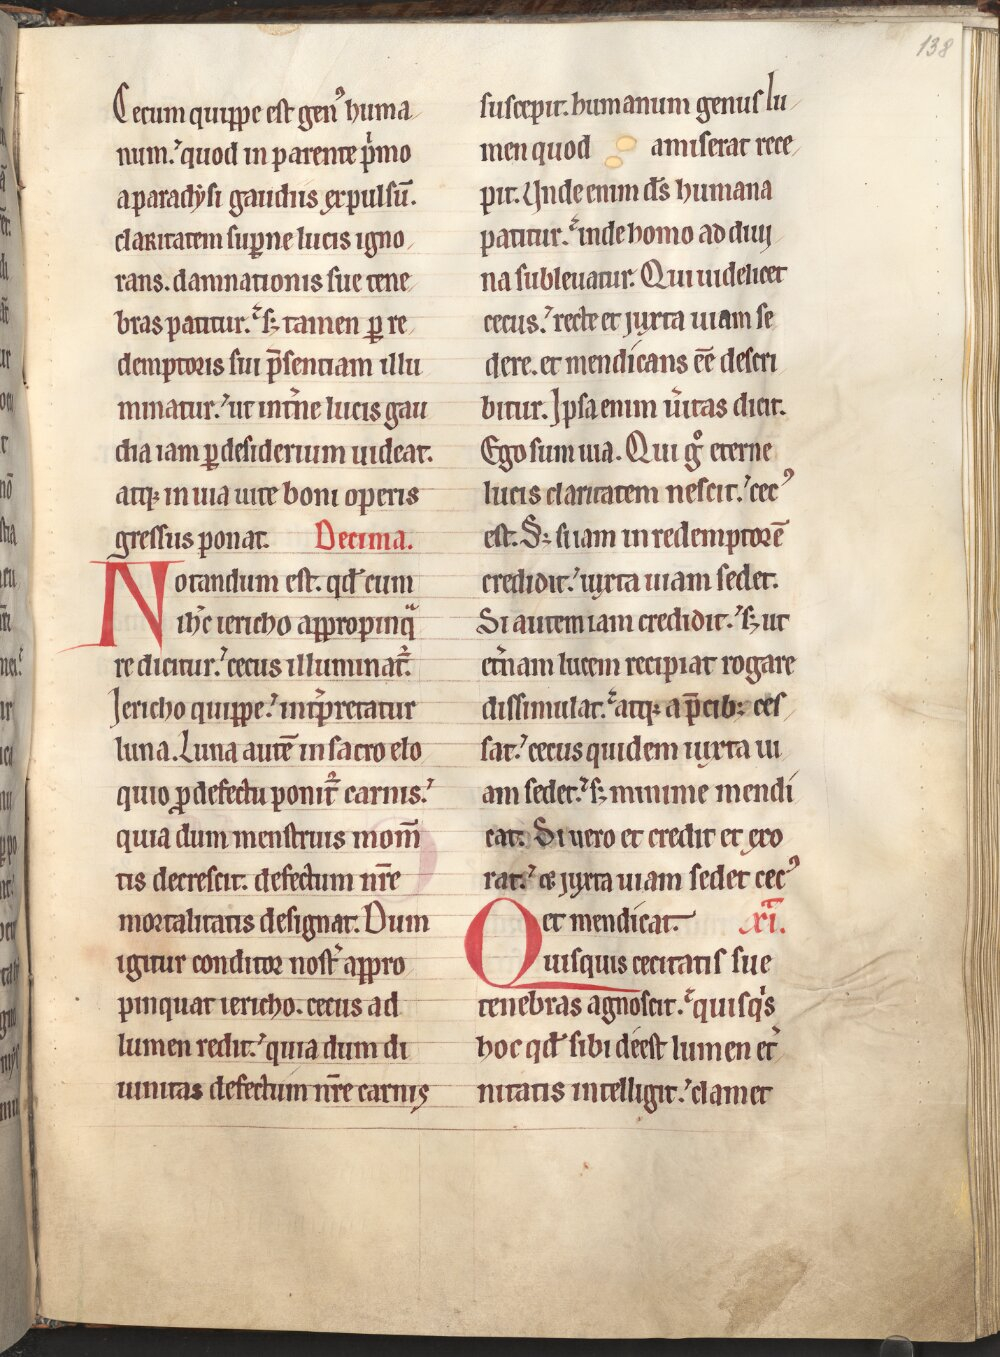 138
Cecum quippe est gen⁹ huma
num. quod in parente p̄mo
a paradẏsi gaudiis expulsū.
claritatem sup̱ne lucis igno
rans. damnationis sue tene
bras patitur. sꝫ tamen ꝑ re
demptoris sui p̄sentiam illu
minatur. ut int̄ne lucis gau
dia iam ꝑ desiderium uideat.
atqꝫ in uia uite boni operis
gressus ponat. Decima.
Notandum est. qđ cum
ih̄c iericho appropinq̄
re dicitur. cecus illuminat᷑.
Jericho quippe. int̄pretatur
luna. Luna autē in sacro elo
quio ꝑ defectu ponit᷑ carnis.
quia dum menstruis mom̄
tis decrescit. defectum nr̄e
mortalitatis designat. Dum
igitur conditor nost̄ appro
pinquat iericho. cecus ad
lumen redit. quia dum di
uinitas defectum nr̄e carnis
suscepit. humanum genus lu
men quod amiserat rece
pit. Unde enim ds̄ humana
patitur. inde homo ad diui
na subleuatur. Qui uidelicet
cecus. recte et juxta uiam se
dere. et mendicans eē descri
bitur. Jpsa enim ūitas dicit.
Ego sum uia. Qui gͦ eterne
lucis claritatem nescit. cec⁹
est. Sꝫ si iam in redemptorē
credidit. iuxta uiam sedet.
Si autem iam credidit. sꝫ ut
et̄nam lucem recipiat rogare
dissimulat. atqꝫ a p̄cibꝫ ces
sat. cecus quidem iuxta ui
am sedet. sꝫ minime mendi
cat. Si uero et credit et exo
rat. ce juxta uiam sedet cec⁹
et mendicat. xi.
Quisquis cecitatis sue
tenebras agnoscit. quisqͥs
hoc qđ sibi deest lumen et̄
nitatis intelligit. clamet